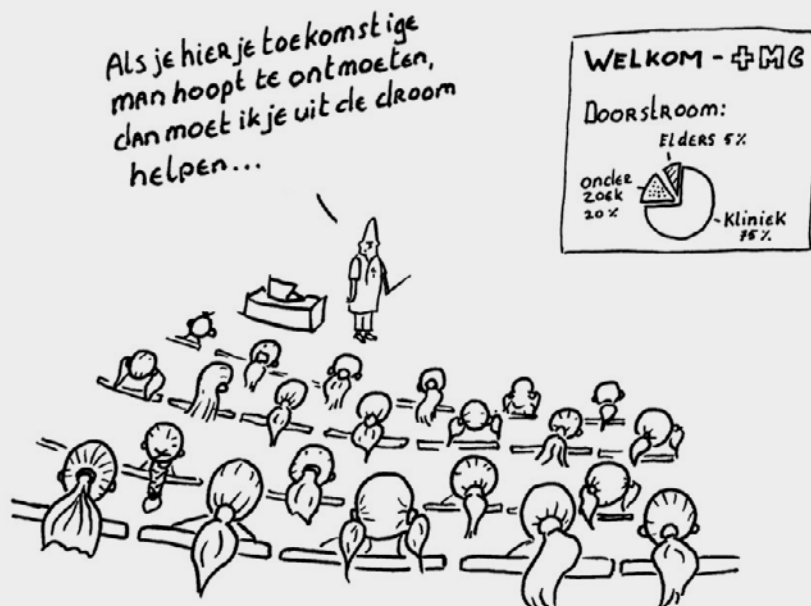 Als je hier je toekomstige
man hoopt te ontmoeten,
dan moet ik je uit de droom
helpen...
WELKOM - +MC
Doorstroom:
Elders 5%
onder
zoek
20%
Kliniek
75%